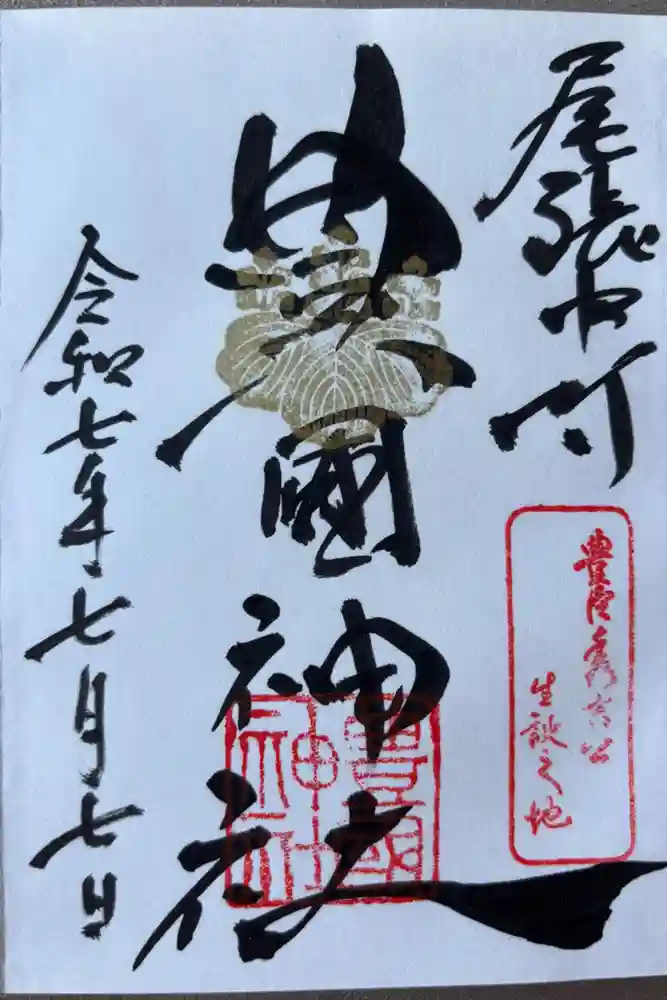 尾張中村
豊臣秀吉公
生誕之地
豊國神社
豊國
神社
令和七年七月七日